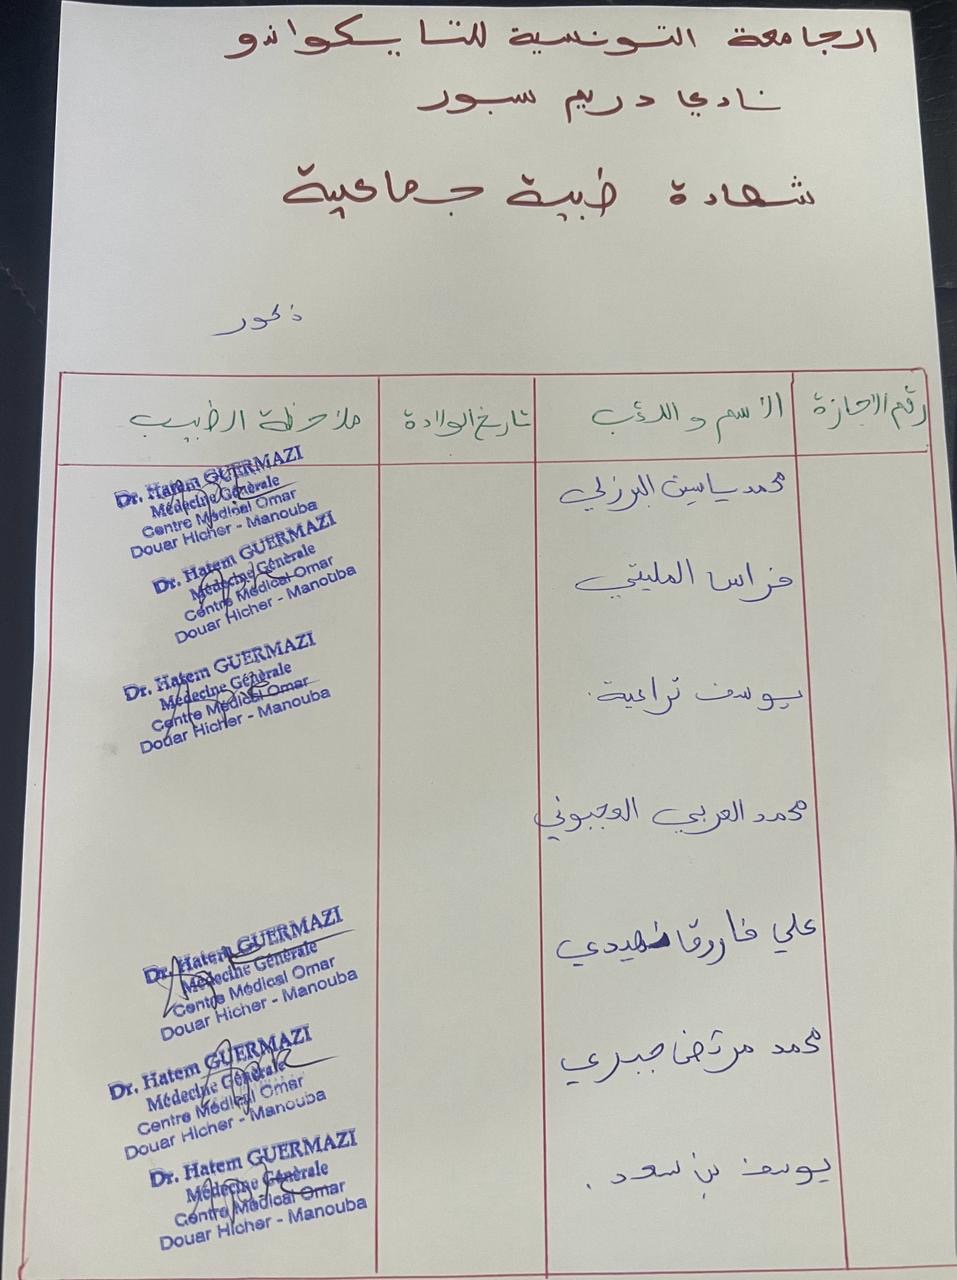 الجامعة التونسية للتايكواندو
نادي دريم سبور
شهادة طبية جماعية
ذكور
رقم الاجازة الاسم و اللقب تاريخ الولادة ملاحظة الطبيب
محمد ياسين البرزلي
Dr. Hatem GUERMAZI
Médecine Générale
Centre Médical Omar
Douar Hicher - Manouba
فراس المليتي
Dr. Hatem GUERMAZI
Médecine Générale
Centre Médical Omar
Douar Hicher - Manouba
يوسف تراعية
Dr. Hatem GUERMAZI
Médecine Générale
Centre Médical Omar
Douar Hicher - Manouba
محمد العربي العجبوني
علي فاروق
Dr. Hatem GUERMAZI
Médecine Générale
Centre Médical Omar
Douar Hicher - Manouba
محمد مرتضى جبري
Dr. Hatem GUERMAZI
Médecine Générale
Centre Médical Omar
Douar Hicher - Manouba
يوسف بن سعد .
Dr. Hatem GUERMAZI
Médecine Générale
Centre Médical Omar
Douar Hicher - Manouba